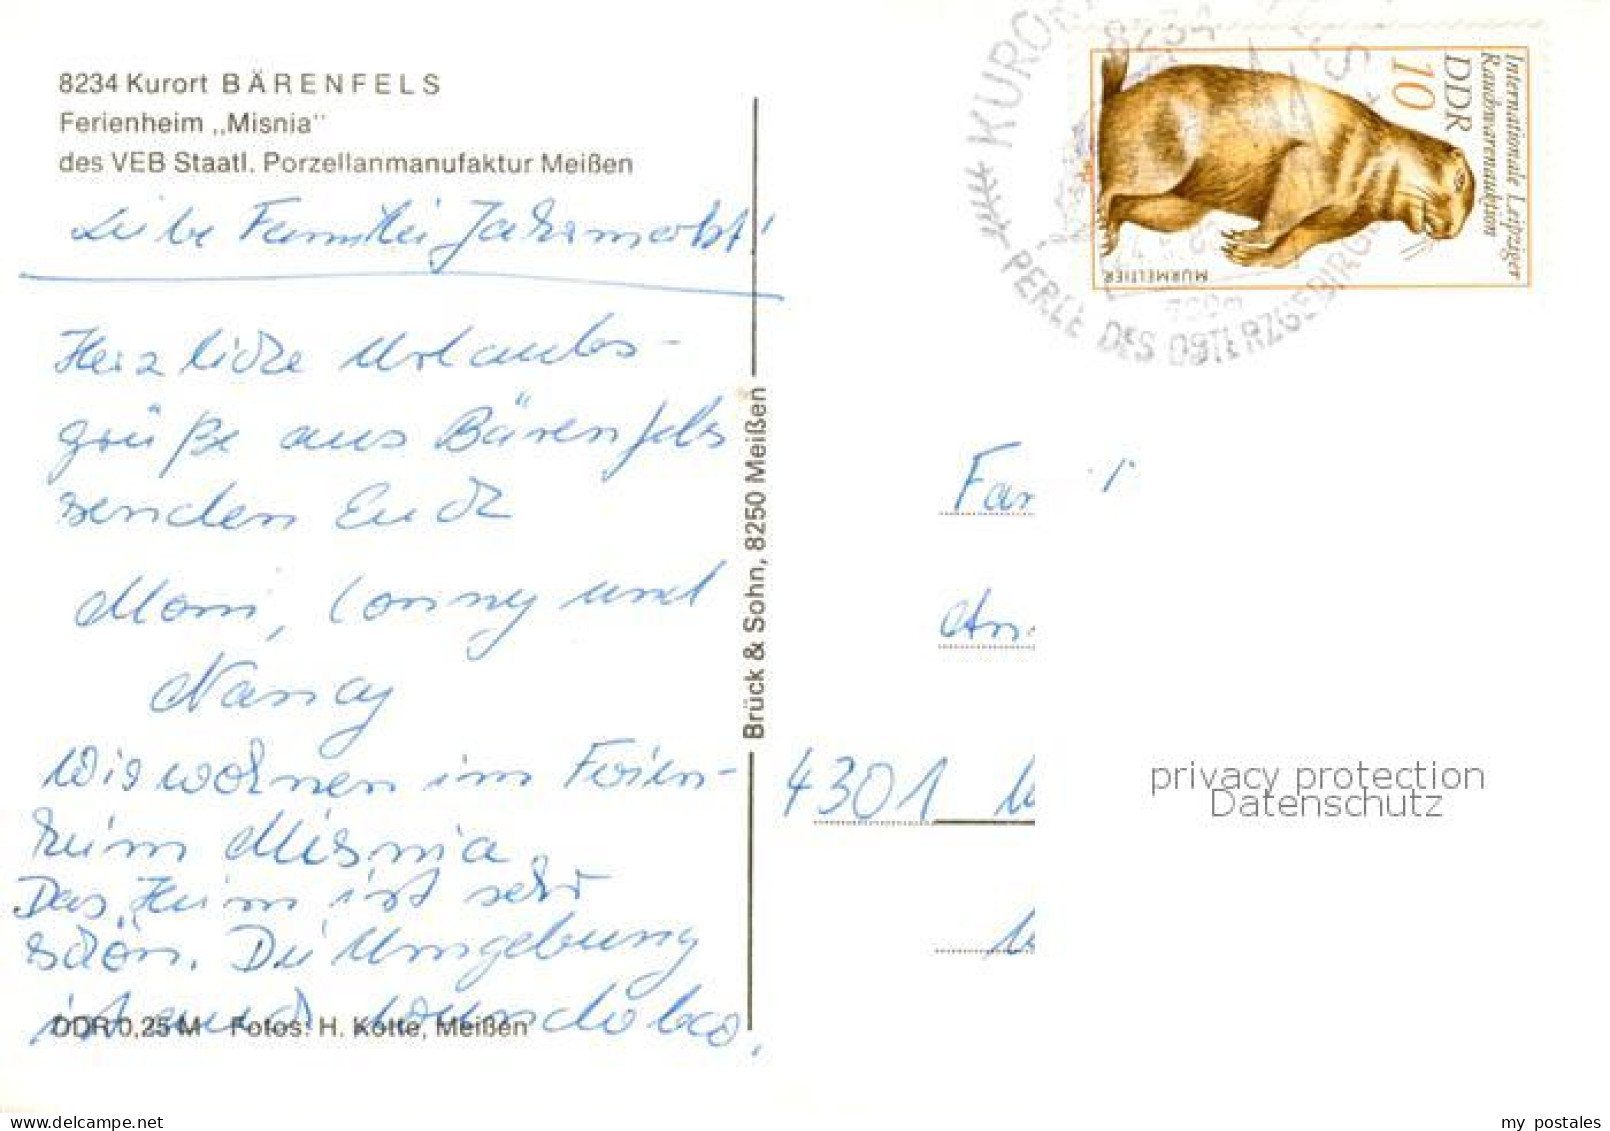 8234 Kurort BÄRENFELS
Ferienheim „Misnia"
des VEB Staatl. Porzellanmanufaktur Meißen
Liebe Familie Jahrmarkt!
Herzliche Urlaubs-
grüße aus Bärenfels
senden Euch
Moni, Conny und
Nancy
Wir wohnen im Ferien-
heim Misnia.
Das Heim ist sehr
schön. Die Umgebung
ist auch wunderbar.
DDR 0,25 M Fotos: H. Kotte, Meißen
Brück & Sohn, 8250 Meißen
KURORT
8234
PERLE DES OSTERZGEBIRGES
Internationale Leipziger
Rauchwarenauktion
DDR
10
MURMELTIER
Fam
An
4301
privacy protection
Datenschutz
www.delcampe.net
my_postales